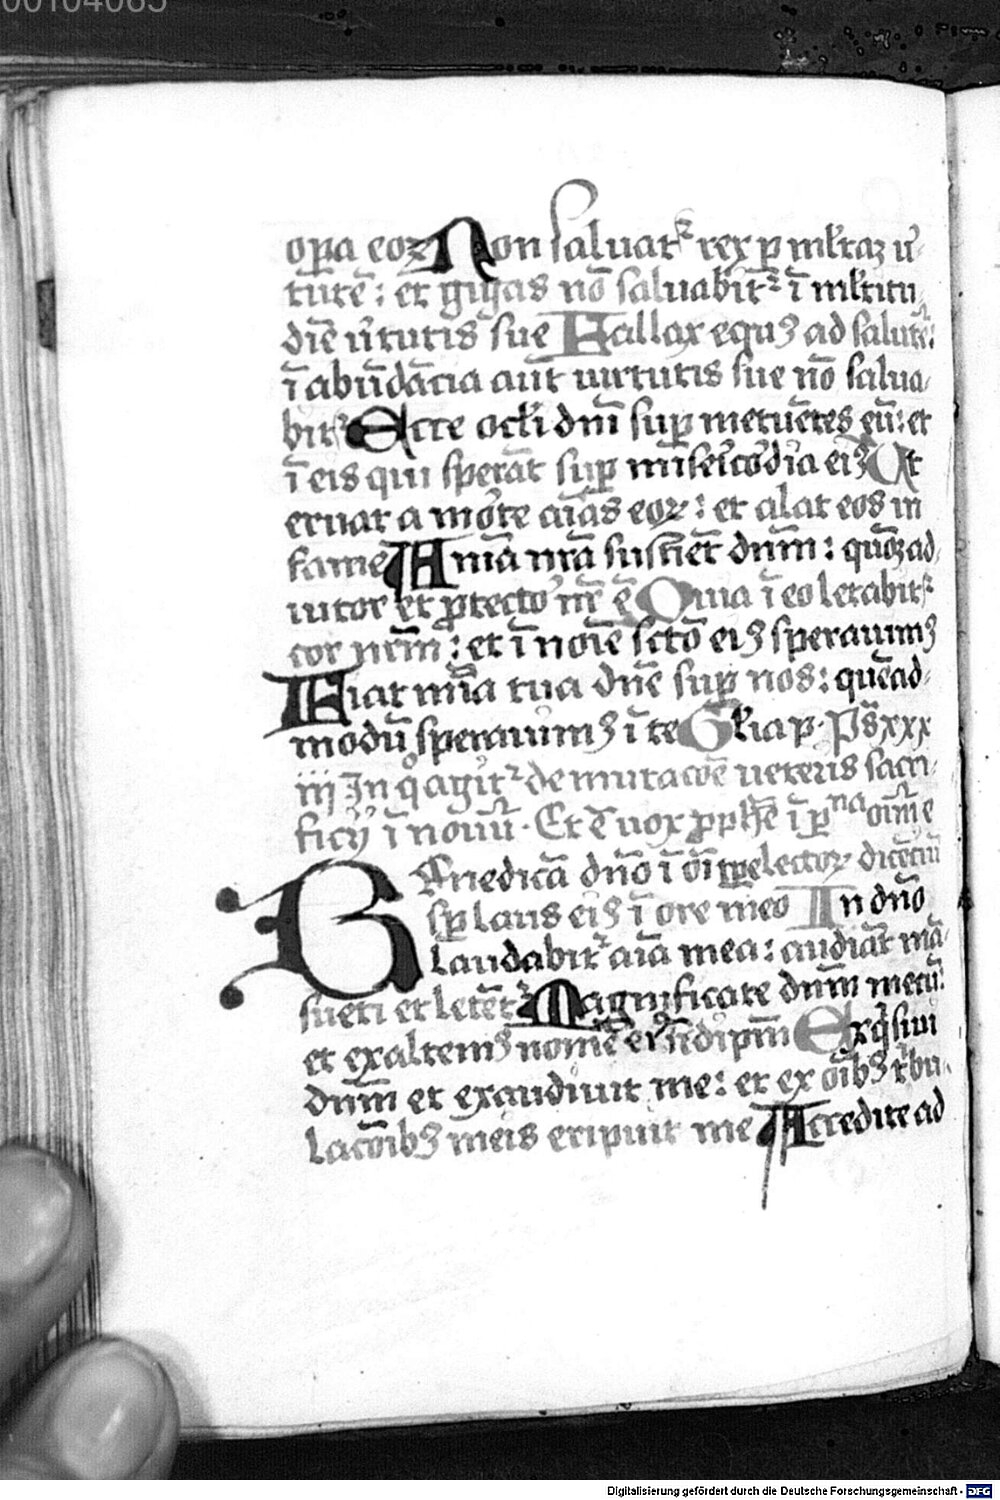 00104065
oꝑa eoꝝ Non saluat᷑ rex ꝑ ml̄taꝫ v̄
tutē: et gigas nō saluabit᷑ ī ml̄titu
dīe v̄tutis sue Fallax equꝫ ad salutē:
ī abūdācia aūt uirtutis sue nō salua
bit᷑ Ecce ocl̄i dn̄i suꝑ metuētes eū: et
ī eis qui sperāt suꝑ mīsēicōdia eiꝫ Ut
eruat a mōte aīas eoꝝ: et alat eos in
fame Anīa nr̄a sustīet dn̄m: quōꝫ ad
iutor et ꝓtectō nr̄ ē Quia ī eo letabit᷑
cor nr̄m: et ī noīe scto eiꝫ sperauimꝫ
Fiat mīa tua dn̄e suꝑ nos: quēad
modū sperauimꝫ ī te Gl̄ia p. Ps̄ xxx
iij In qͦ agit᷑ de mutacōe ueteris sacri
ficij ī nouū. Et ē uox ꝓpħe ī ꝑ
Benedicā dn̄o ī oī tꝑe lectoꝝ dicēciū
sꝑ laus eiꝫ ī ore meo In dn̄o
laudabit᷑ aīa mea: audiāt mā
sueti et letēt᷑ Magnificate dn̄m mecū:
et exaltemꝫ nomē eiꝫ ī idipm̄ Exqͥsiui
dn̄m et exaudiuit me: et ex oībꝫ tͥbu
lacōibꝫ meis eripuit me Accedite ad
Digitalisierung gefördert durch die Deutsche Forschungsgemeinschaft - DFG